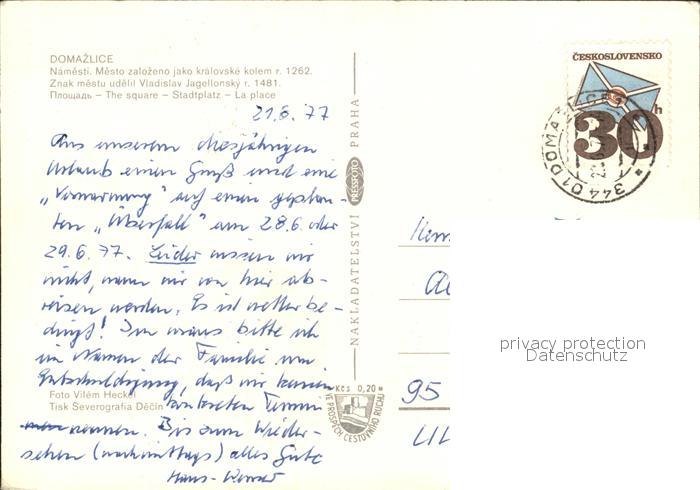 DOMAŽLICE
Náměstí. Město založeno jako královské kolem r. 1262.
Znak městu udělil Vladislav Jagellonský r. 1481.
Площадь – The square – Stadtplatz – La place
21.6.77
Aus unserem diesjährigen
Urlaub einen Gruß und eine
„Vorwarnung" auf einen geplan-
ten „Überfall" am 28.6. oder
29.6.77. Leider wissen wir
nicht, wann wir von hier ab-
reisen werden. Es ist wetterbe-
dingt! Im voraus bitte ich
im Namen der Familie um
Entschuldigung, daß wir keinen
konkreten Termin
nennen. Bis zum Wieder-
sehen (nachmittags) alles Gute
Hans-
Foto Vilém Heckel
Tisk Severografia Děčín
NAKLADATELSTVÍ PRESSFOTO PRAHA
Kčs 0,20
VE PROSPĚCH CESTOVNÍHO RUCHU
ČESKOSLOVENSKO
30h
344 01 DOMAŽLICE 1
95
privacy protection
Datenschutz